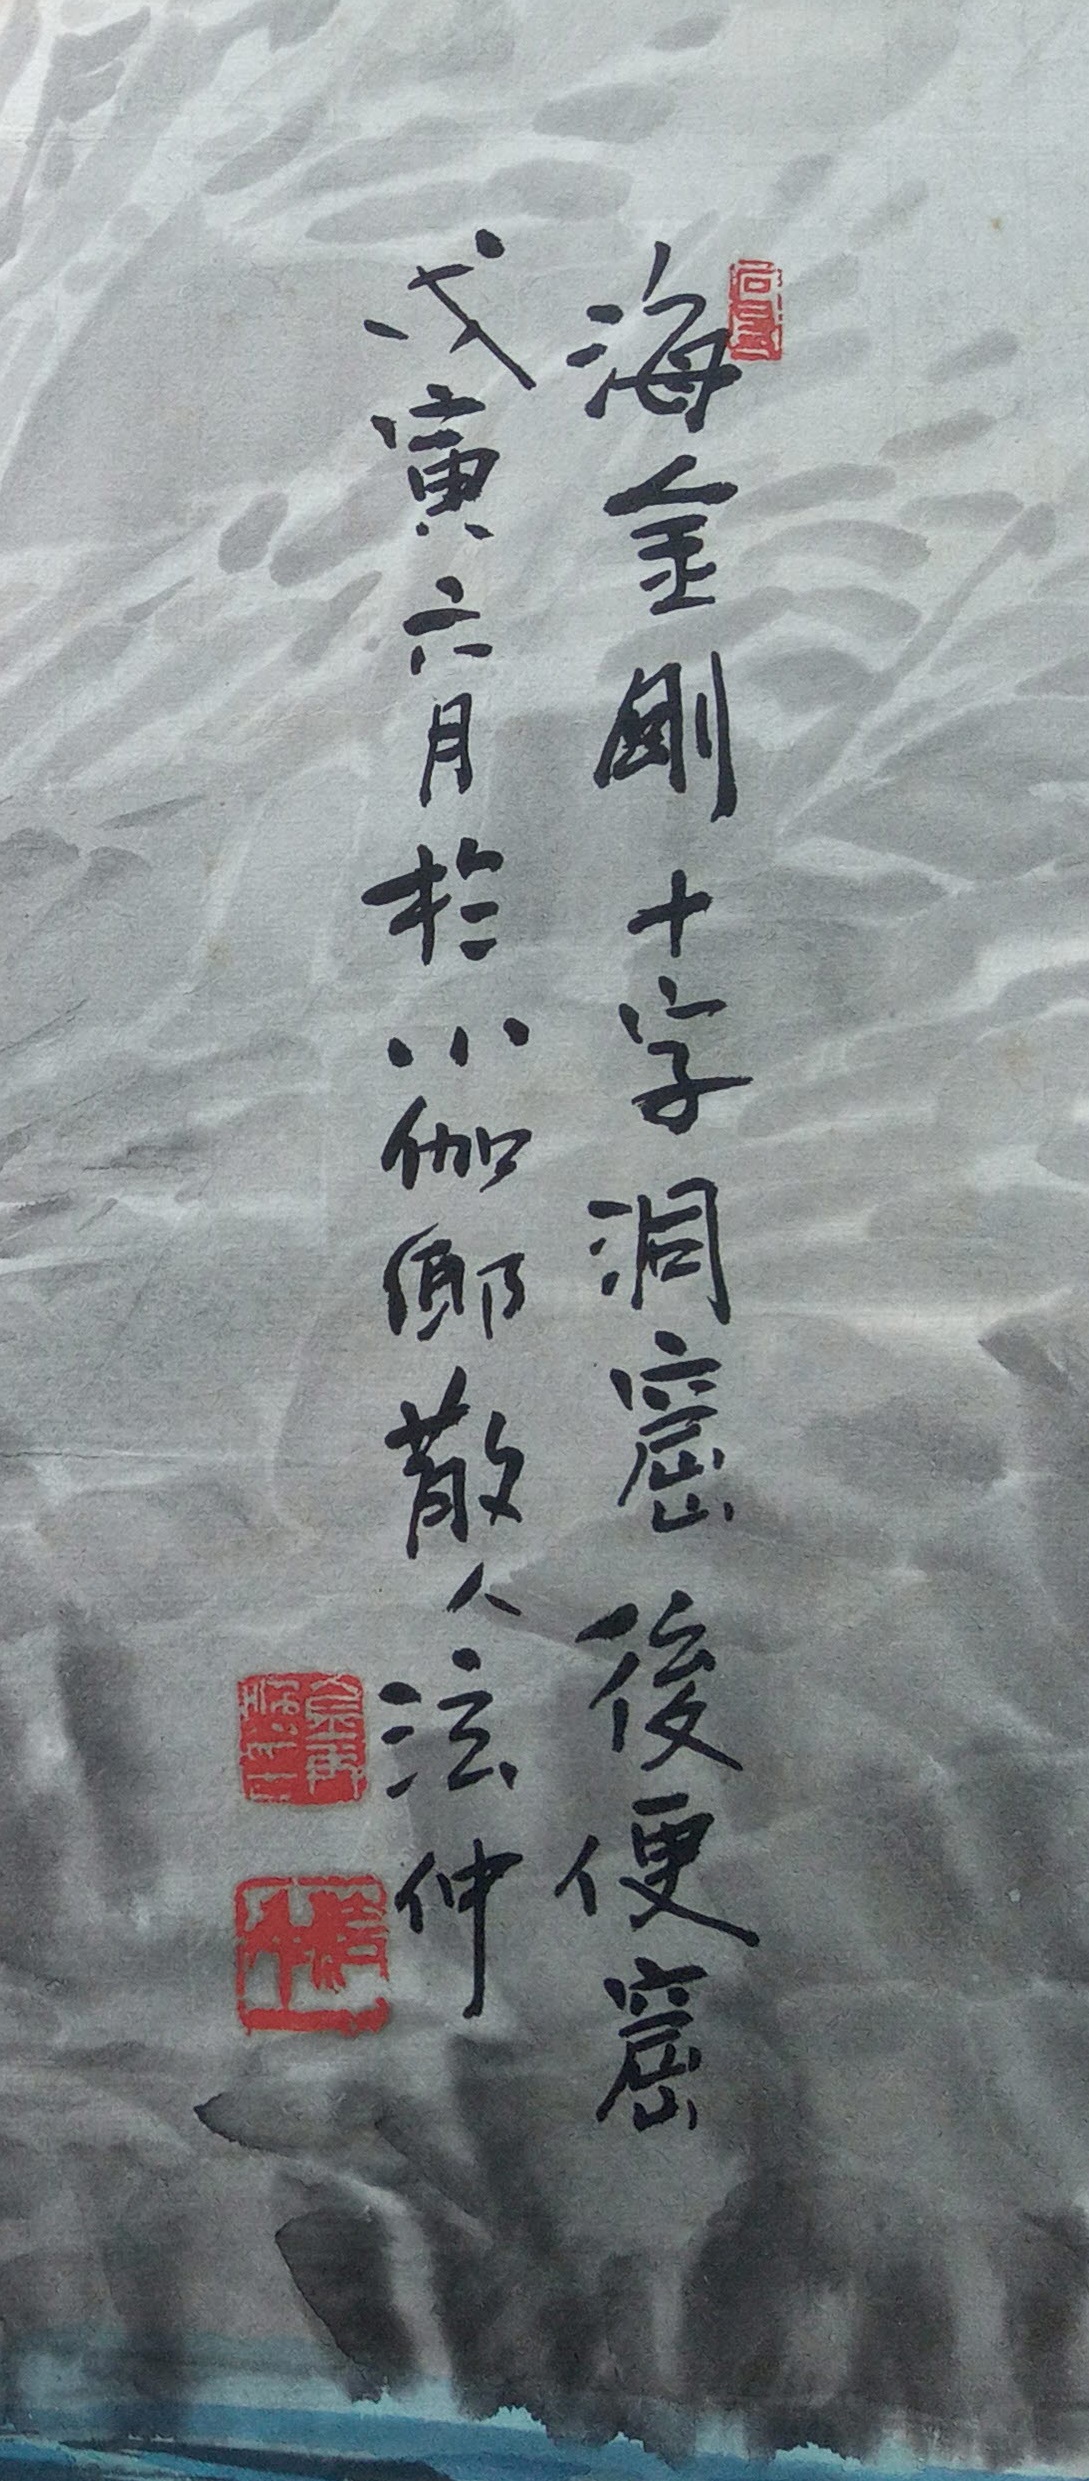 海金剛十字洞窟後便窟
戊寅六月於小伽鄕散人泫仲